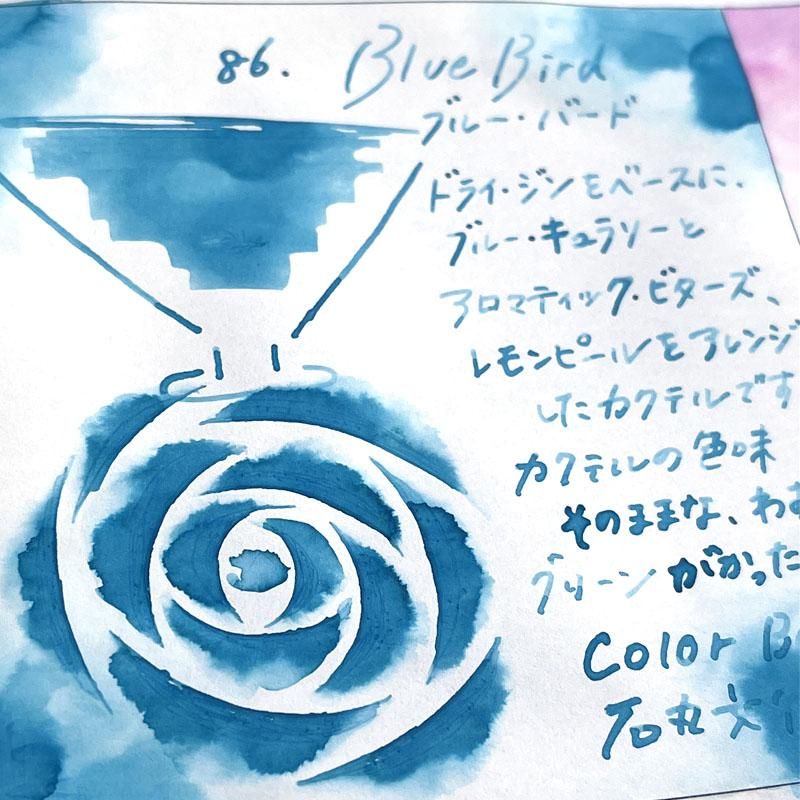 86. Blue Bird
ブルー・バード
ドライ・ジンをベースに、
ブルー・キュラソーと
アロマティック・ビターズ、
レモンピールをアレンジ
したカクテルです
カクテルの色味
そのままな、わ
グリーンがかった
Color B
石丸文